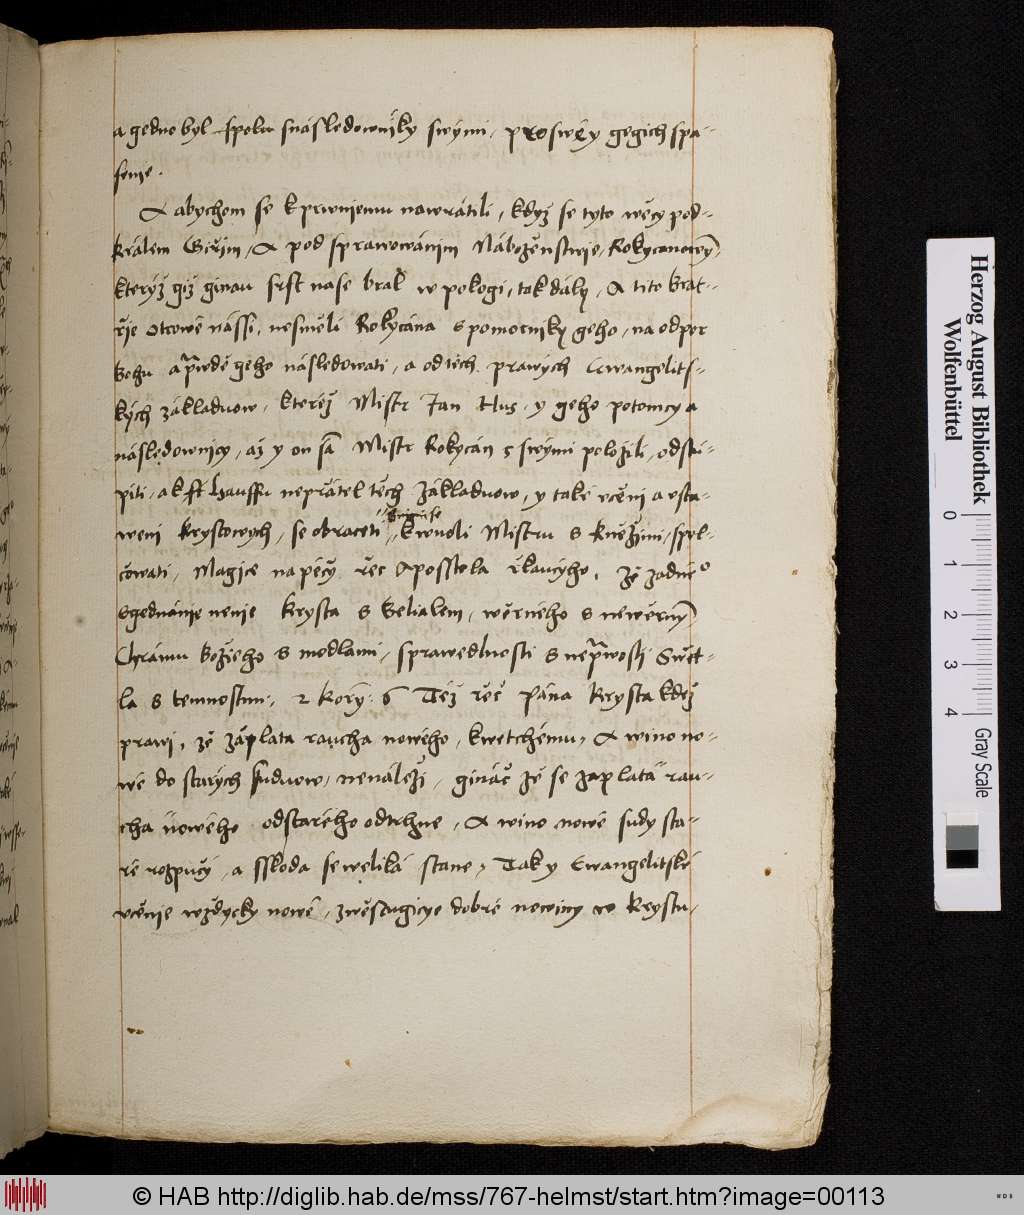 a gedno byl spolu snásledowníky swými, pro swéy gegich spa-
senie.
A abychom se k prwniemu nawrátili, když se tyto wěcy pod-
králem Giřím, A pod sprawowáním Náboženstwie, Rokycanowým,
kterýž giž ginau srst na se bral w pologi, tak dály, A tito brat-
řie otcowé nássi, nesměli Rokycána s pomocniky geho, na odpor
bohu a prawdě geho následowati, a od těch prawých Ewangelits-
kých základuow, kteréž Mistr Jan Hus, y geho potomcy a
následownicy, až y on sám Mistr Rokycán s swými položili, odstu-
piti, a k hauffu nepřátel těch základuow, y také včení a vsta-
wení krystowých, se obraceti, k wuoli Mistru s kněžími, spol-
čowati, Magice na péčy řeč Aposstola řkaucýho, že žádného
sgednánie nenie Krysta s Belialem, wěrného s newěrným
Chrámu božieho s modlami, sprawedlnosti s neprawostí Swět-
la s temnostmi, 2 Kory: 6 Též řeč Pána Krysta kdež
prawí, že záplata raucha nowého, k wetchému, A wino no-
wé do starých suduow, nenáleží, gináč že se záplata rau-
cha nowého od starého odtrhne, A wino nowé sudy sta-
ré rozpučý, a sskoda se weliká stane, Tak y Ewangelitské
včenie wždycky nowé, zwěstugicýe dobré nowiny o Krystu,
Herzog August Bibliothek
Wolfenbüttel
0 1 2 3 4 Gray Scale
© HAB http://diglib.hab.de/mss/767-helmst/start.htm?image=00113